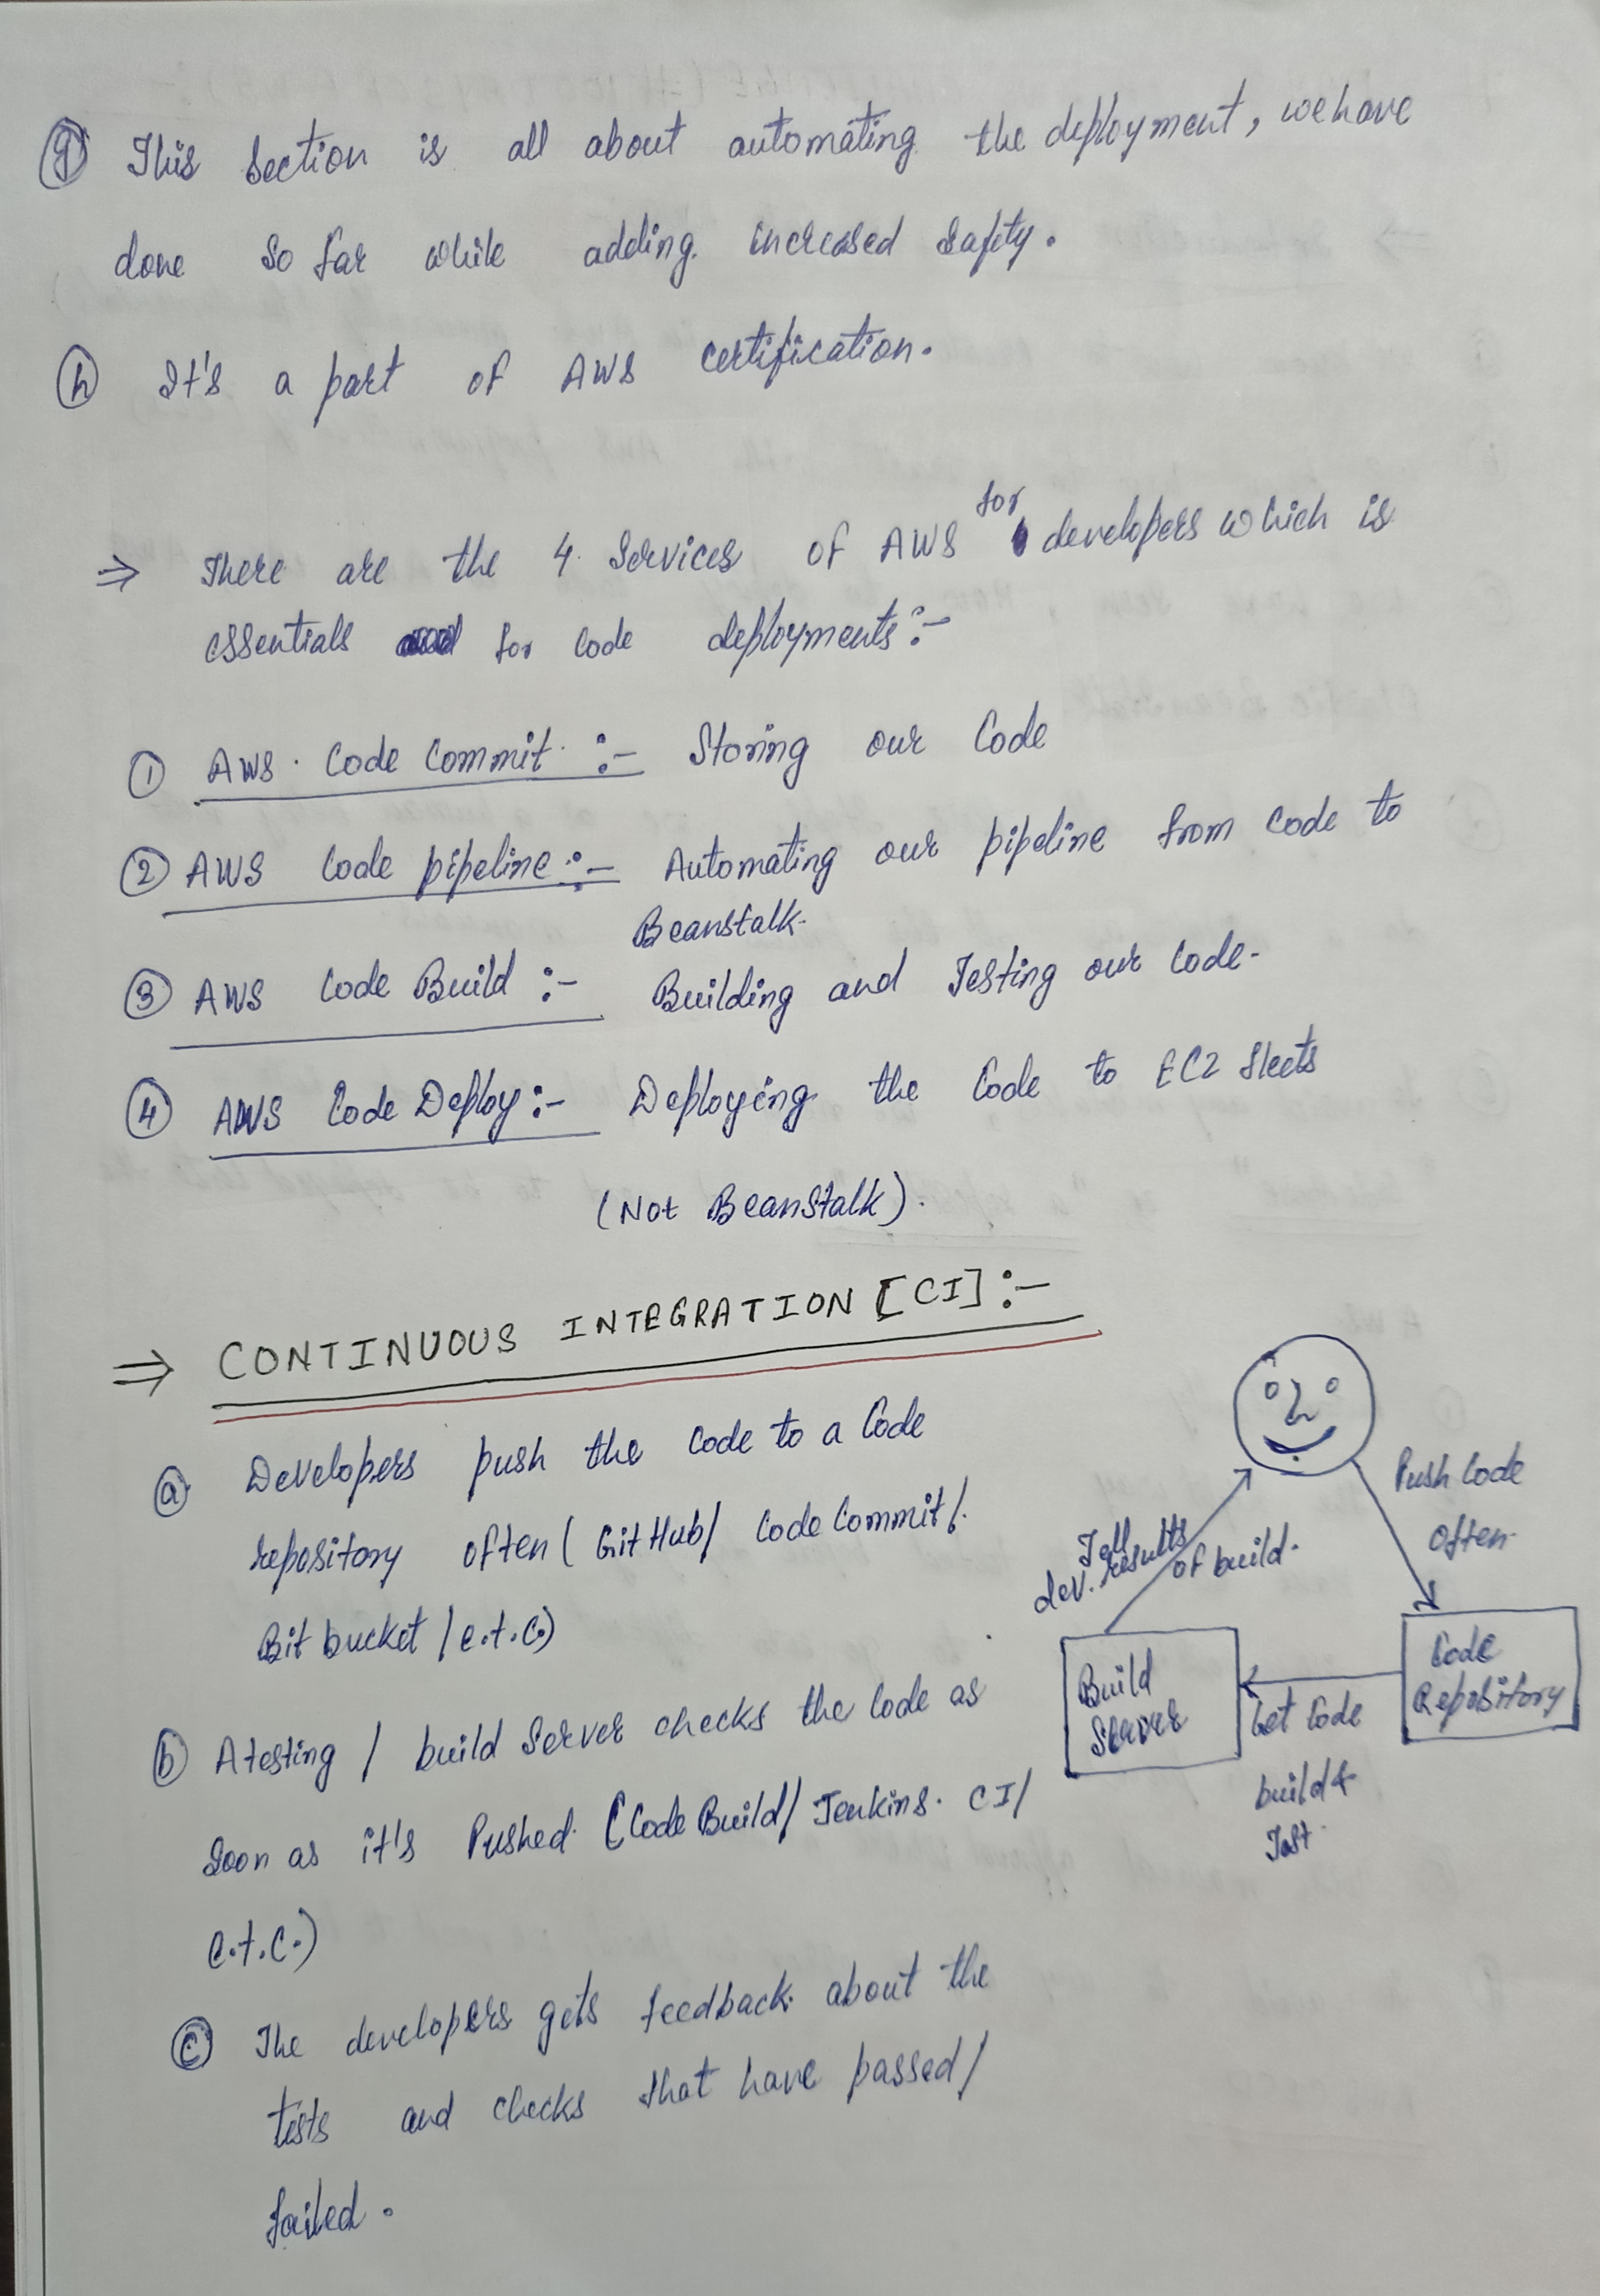 (g) This section is all about automating the deployment, we have
done so far while adding increased safety.
(h) It's a part of AWS certification.
⇒ There are the 4 services of AWS for developers which is
essentials for code deployments:-
(1) AWS Code Commit :- Storing our Code
(2) AWS Code pipeline :- Automating our pipeline from code to
Beanstalk.
(3) AWS Code Build :- Building and Testing our code.
(4) AWS Code Deploy :- Deploying the Code to EC2 fleets
(Not Beanstalk).
⇒ CONTINUOUS INTEGRATION [CI] :-
(a) Developers push the code to a Code
repository often (GitHub/ Code Commit/
Bit bucket / e.t.c.)
(b) A testing / build server checks the code as
soon as it's Pushed. (Code Build/ Jenkins. CI/
e.t.c.)
(c) The developers gets feedback about the
tests and checks that have passed/
failed.
Push Code
Often
Tell
dev. results
of build.
Build
Server
Code
Repository
Get Code
build &
Test.